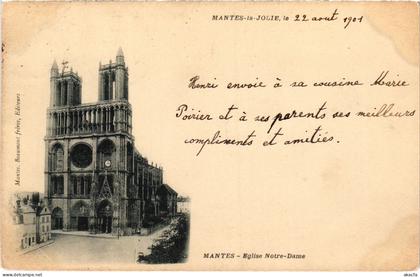 MANTES-la-JOLIE, le 22 août 1901
Henri envoie à sa cousine Marie
Poirier et à ses parents ses meilleurs
compliments et amitiés.
Mantes. Beaumont frères, Editeurs
MANTES - Eglise Notre-Dame